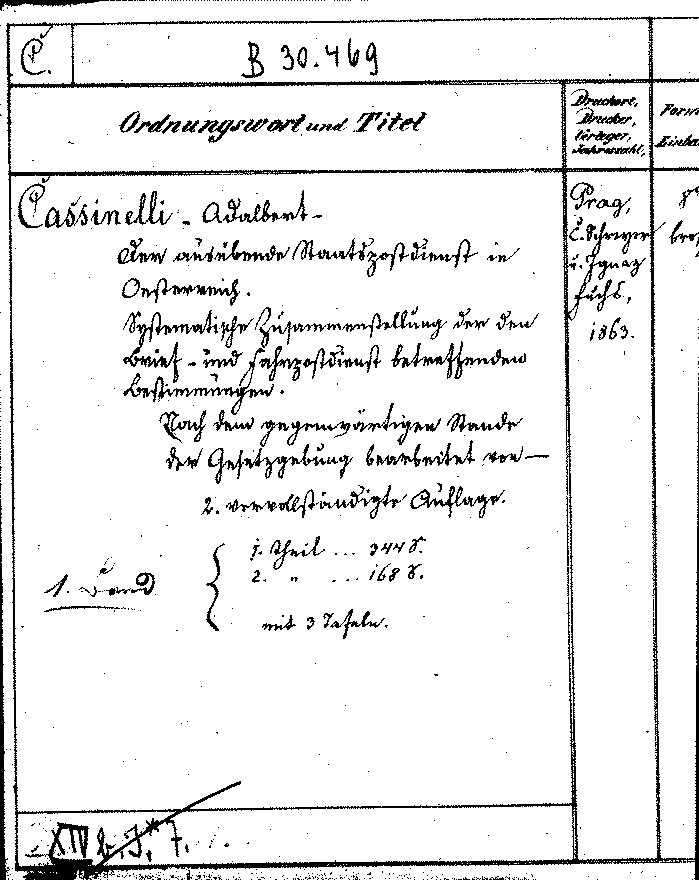 C.
B 30.469
Ordnungswort und Titel
Druckort,
Drucker,
Verleger,
Jahreszahl,
Cassinelli - Adalbert -
Der ausübende Staatspostdienst in
Oesterreich.
Systematische Zusammenstellung der den
Brief- und Fahrpostdienst betreffenden
Bestimmungen.
Nach dem gegenwärtigen Stande
der Gesetzgebung bearbeitet von —
2. vervollständigte Auflage.
1. Band
1. Theil ... 344 S.
2. " ... 168 S.
mit 3 Tafeln.
Prag,
C. Schreyer
u. Ignaz
Fuchs,
1863.
8°
XIV b. J.* 7.